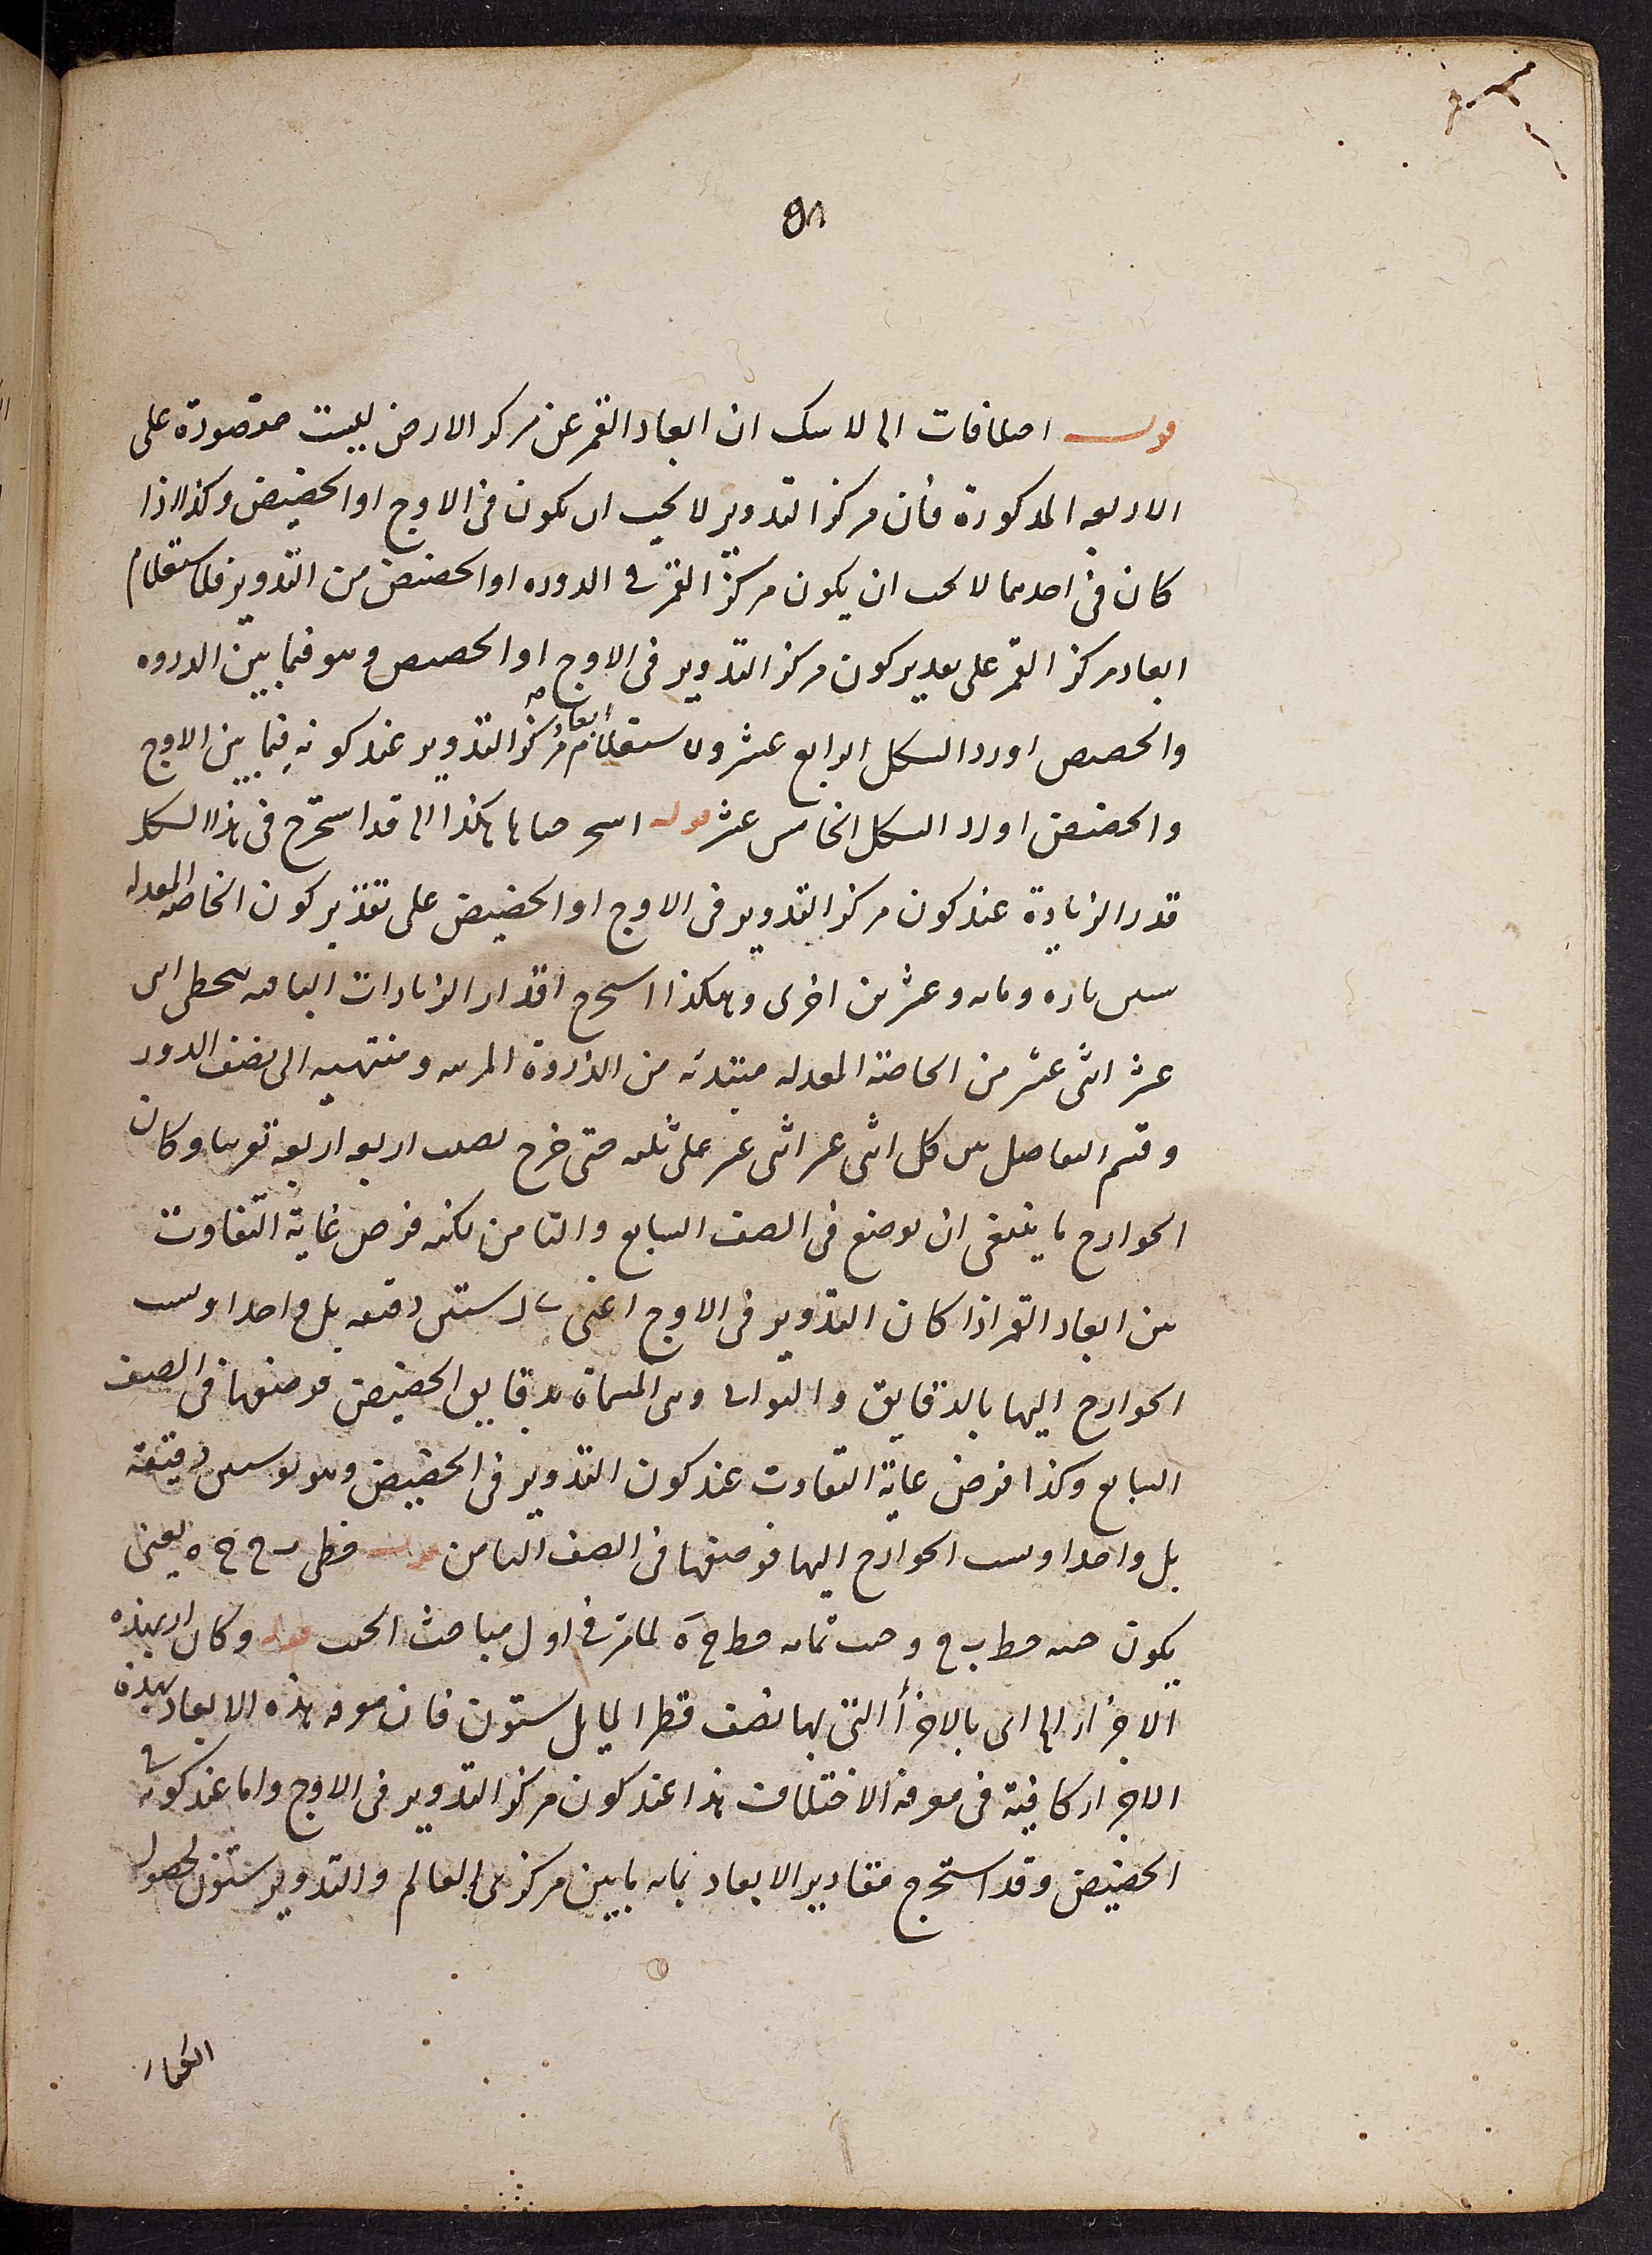 قوله اختلافات الخ لا شك ان ابعاد القمر عن مركز الارض ليست مقصورة على
الاربعه المذكورة فان مركز التدوير لا يجب ان يكون فى الاوج او الحضيض وكذا اذا
كان فى احدهما لا يجب ان يكون مركز القمر فى الذروه او الحضيض من التدوير فلاستعلام
ابعاد مركز القمر على تقدير كون مركز التدوير فى الاوج او الحضيض وهو فيما بين الذروه
والحضيض اورد الشكل الرابع عشر ولاستعلام ابعاد مركز التدوير عند كونه فيما بين الاوج
والحضيض اورد الشكل الخامس عشر قوله هكذا الخ قد استخرج فى هذا الشكل
قدر الزيادة عند كون مركز التدوير فى الاوج او الحضيض على تقدير كون الخاصه المعدله
ستين تاره ومايه وعشرين اخرى وهكذا استخرج اقدار الزيادات الباقيه
عشر اثنى عشر من الخاصة المعدله مبتدئه من الذروة المرئيه ومنتهيه الى نصف الدور
وقسم التفاضل بين كل اثنى عشر اثنى عشر على ثلثه حتى خرج اربعه اربعه تقريبا وكان
الخوارج ما ينبغى ان يوضع فى الصف السابع والثامن لكنه فرض غاية التفاوت
بين ابعاد القمر اذا كان التدوير فى الاوج اعنى ستين دقيقه بل واحدا ونسب
الخوارج اليها بالدقايق والثوانى وهى المسماة بدقايق الحضيض فوضعها فى الصف
السابع وكذا فرض غاية التفاوت عند كون التدوير فى الحضيض وهو ستين دقيقة
بل واحدا ونسب الخوارج اليها فوضعها فى الصف الثامن قوله خطى ب ح ح ه يعنى
يكون خط ب ح وجيب تمامه خط ح ه لما مر فى اول مباحث الجيب قوله وكان اد بهذه
الاجزاء الخ اى بالاجزأ التى بها نصف قطر المايل ستون فان معرفه هذه الابعاد بهذه
الاجزاء كافية فى معرفة الاختلاف هذا عند كون مركز التدوير فى الاوج واما عند كونه فى
الحضيض وقد استخرج مقادير الابعاد بما به ما بين مركزى العالم والتدوير ستون لحصول